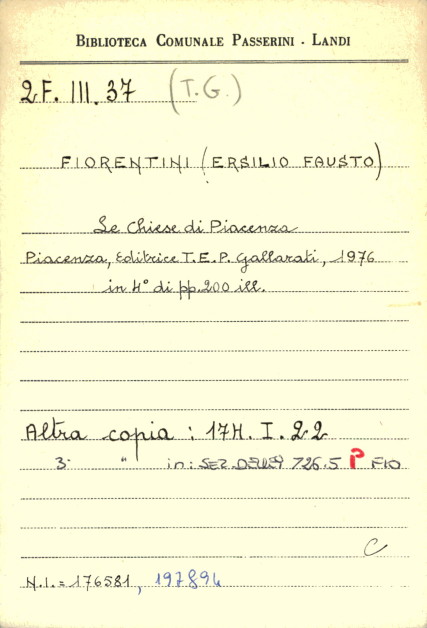 BIBLIOTECA COMUNALE PASSERINI - LANDI
2F. III. 37 (T.G.)
FIORENTINI (ERSILIO FAUSTO)
Le Chiese di Piacenza
Piacenza, Editrice T.E.P. Gallarati, 1976
in 4° di pp. 200 ill.
Altra copia : 17H. I. 22
3ª " in : SEZ. 726.5 P FIO
C
N.I. = 176581, 197894